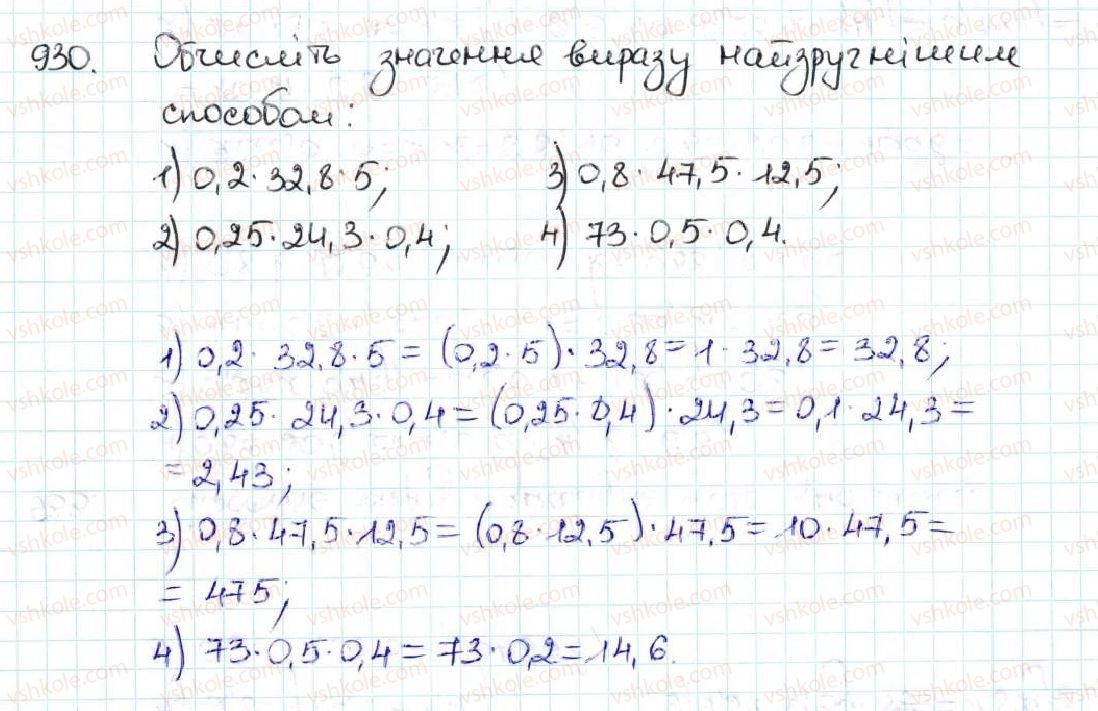 930. Обчисліть значення виразу найзручнішим
способом:
1) 0,2·32,8·5; 3) 0,8·47,5·12,5;
2) 0,25·24,3·0,4; 4) 73·0,5·0,4.
1) 0,2·32,8·5=(0,2·5)·32,8=1·32,8=32,8;
2) 0,25·24,3·0,4=(0,25·0,4)·24,3=0,1·24,3=
=2,43;
3) 0,8·47,5·12,5=(0,8·12,5)·47,5=10·47,5=
=475;
4) 73·0,5·0,4=73·0,2=14,6.